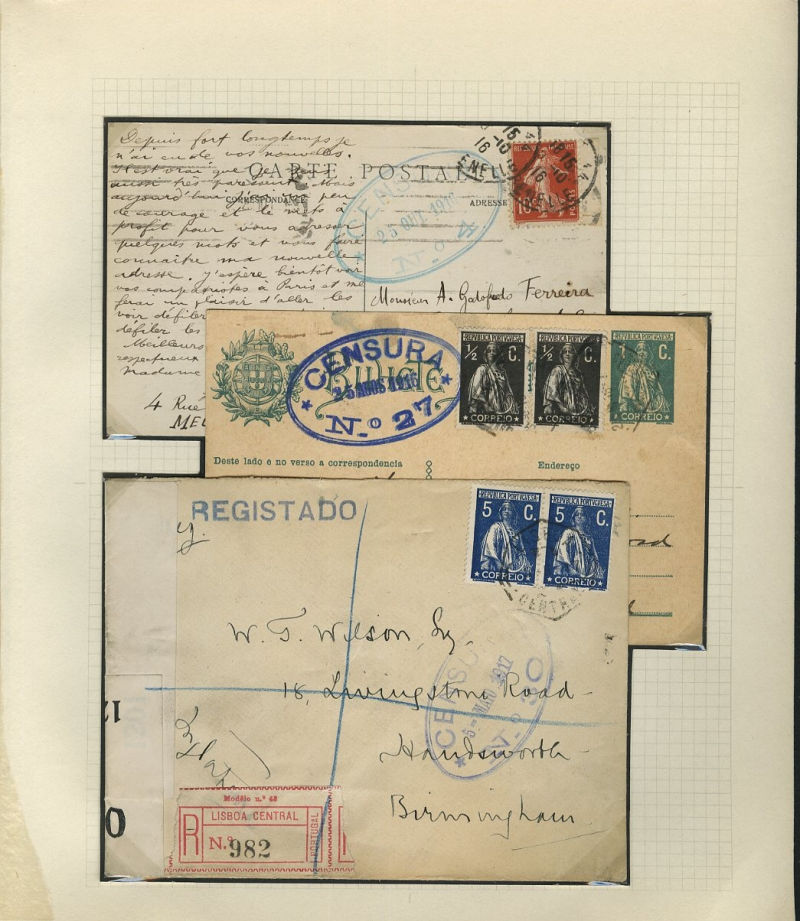 Depuis fort longtemps je
n'ai eu de vos nouvelles.
Il est vrai que je
aussi très paresseux. Mais
aujourd'hui un peu
de courage et le mets à
profit pour vous adresser
quelques mots et vous faire
connaître ma nouvelle
adresse. J'espère bientôt voir
vos compatriotes à Paris et me
ferai un plaisir d'aller les
voir défiler
défiler les
Meilleurs
respectueux
Madame
4 Rue
MEL
CARTE POSTALE
CORRESPONDANCE
ADRESSE
CENSURA
25 OUT. 191
N.º
15
16
10
Monsieur A. Godofredo Ferreira
BILHETE
CENSURA
25 AGOS 1916
N.º 27
REPUBLICA PORTUGUESA
½ C.
CORREIO
REPUBLICA PORTUGUESA
½ C.
CORREIO
REPUBLICA PORTUGUESA
1 C.
CORREIO
Deste lado e no verso a correspondencia
Endereço
REGISTADO
REPUBLICA PORTUGUESA
5 C.
CORREIO
REPUBLICA PORTUGUESA
5 C.
CORREIO
CENTRAL
W. T. Wilson, Esq.
18, Livingstone Road
Handsworth
Birmingham
CENSURA
6-MAIO 1917
N.º 30
12
Modêlo n.º 48
R
LISBOA CENTRAL
N.º 982
PORTUGAL